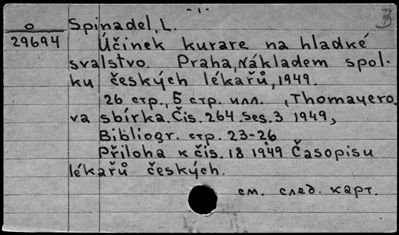 - 1 -
O Spinadel, L.
29694 Účinek kurare na hladké
svalstvo. Praha, Nákladem spol-
ku českých lékařů, 1949.
26 стр., 5 стр. илл. , Thomayero-
va sbírka. Čis. 264 ses. 3 1949,
Bibliogr. стр. 23-26
Příloha k čís. 18 1949 Časopisu
lékařů českých.
см. след. карт.